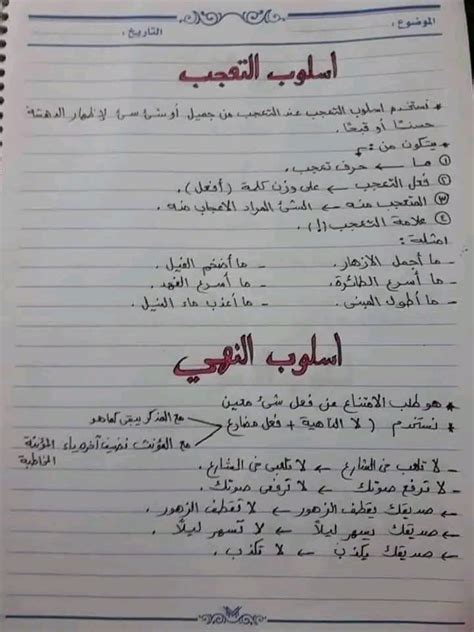 الموضوع :
التاريخ :
اسلوب التعجب
* نستخدم اسلوب التعجب عند التعجب من جميل أو شئ سئ لإظهار الدهشة
حسنًا أو قبحًا.
* يتكون من :-
① ما ← حرف تعجب.
② فعل التعجب ← على وزن كلمة (أفعل).
③ المتعجب منه ← الشئ المراد الاعجاب منه.
④ علامة التعجب (!).
امثلة :
- ما أجمل الازهار. - ما أضخم الفيل.
- ما أسرع الطائرة. - ما أسرع الفهد.
- ما أطول المبنى. - ما أعذب ماء النيل.
اسلوب النهي
* هو طلب الامتناع عن فعل شئ معين
* نستخدم ( لا الناهية + فعل مضارع
مع المذكر يبقى كما هو
مع المؤنث نضيف آخره ياء المؤنثة
المخاطبة
- لا تلعب في الشارع ← لا تلعبي في الشارع.
- لا ترفع صوتك ← لا ترفعي صوتك.
- صديقك يقطف الزهور ← لا تقطف الزهور.
- صديقك يسهر ليلًا ← لا تسهر ليلًا.
- صديقك يكذب ← لا تكذب.